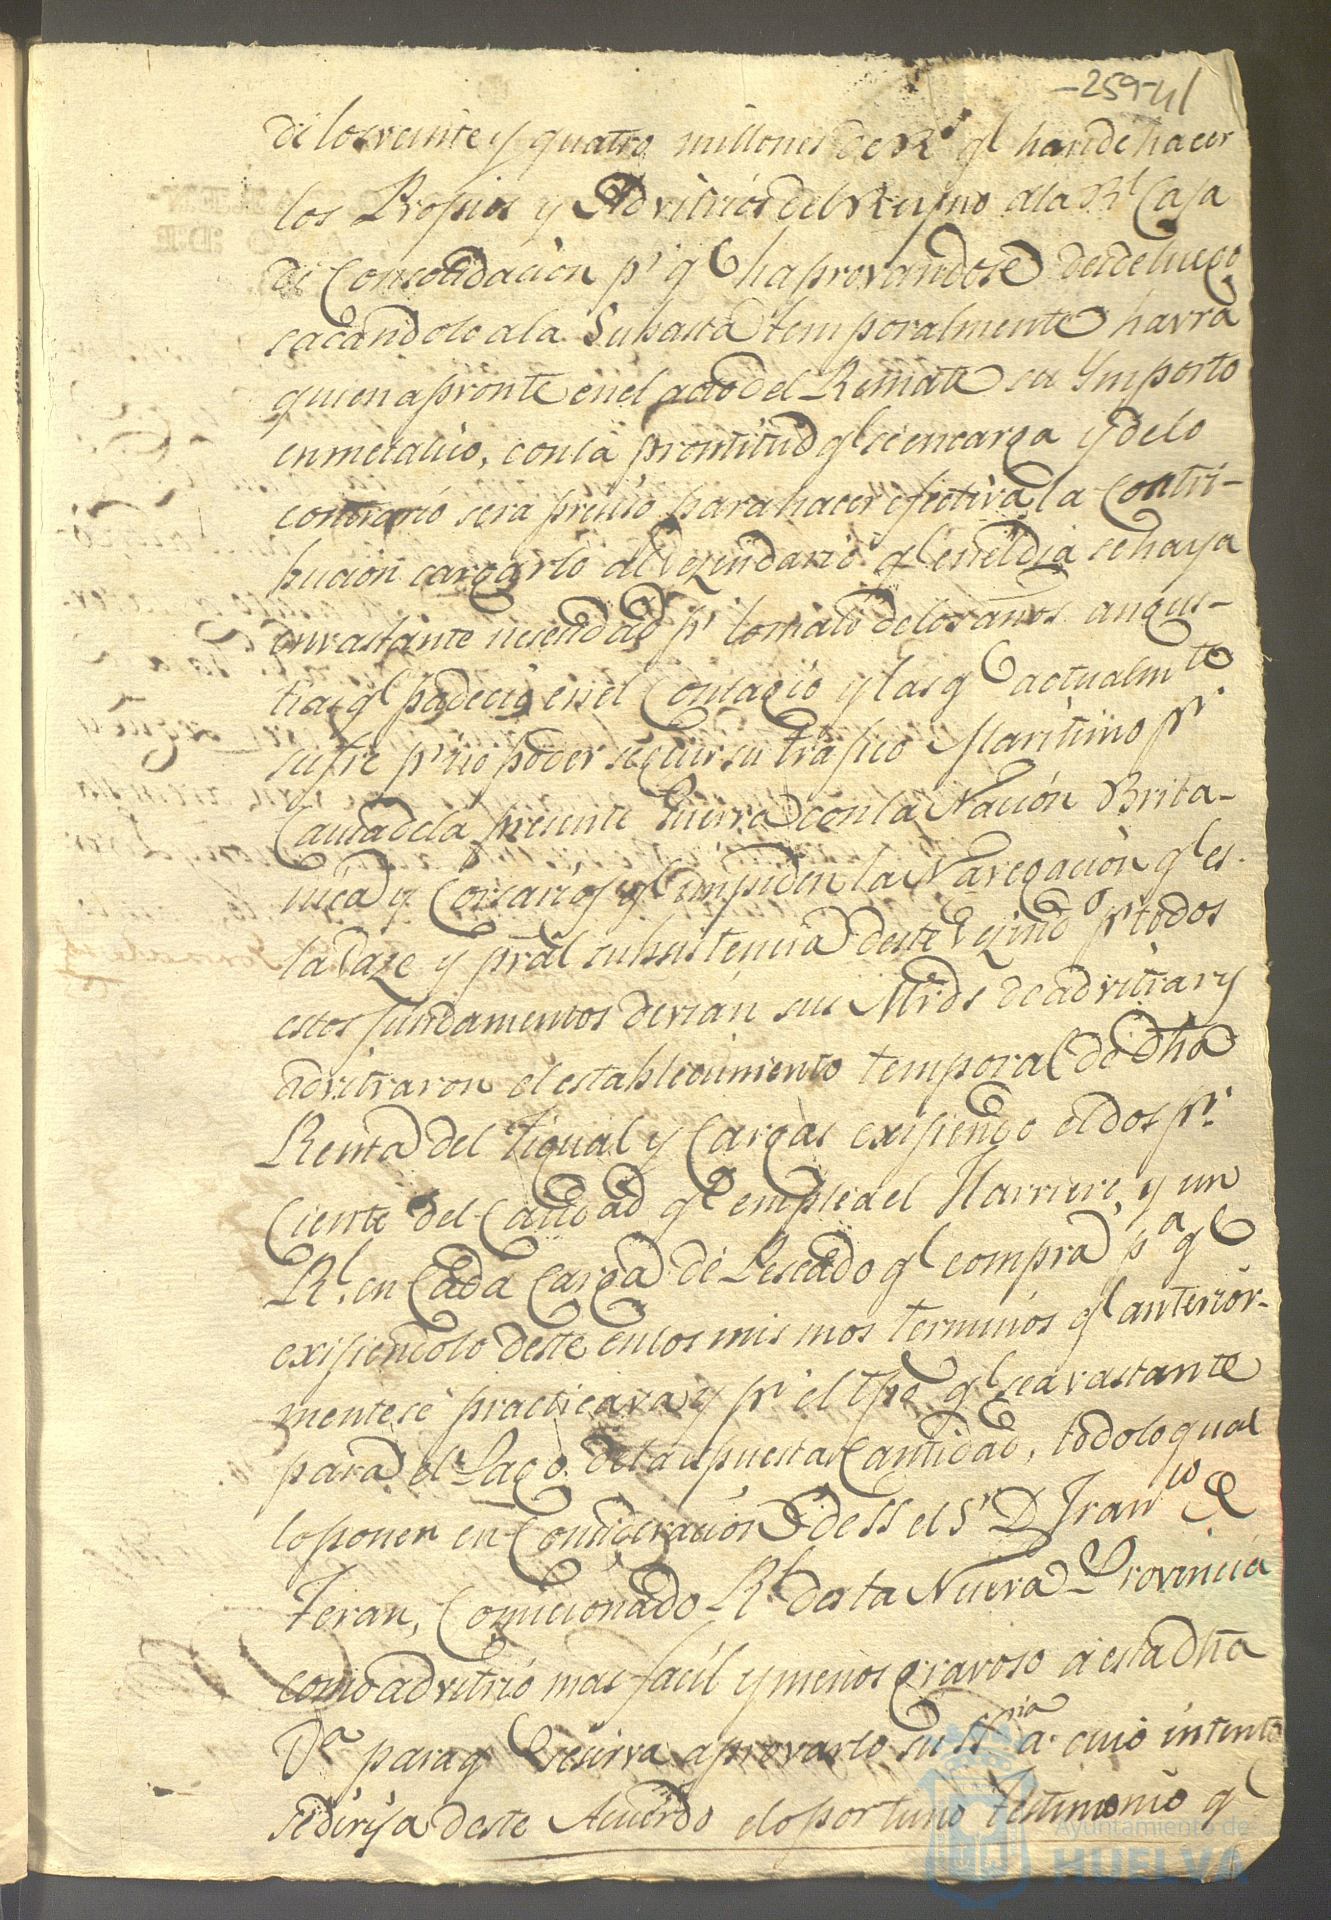 -259-41
de los veinte y quatro millones de Rˢ qͤ han de hacer
los Propios y Advitrios del Reyno a la Rˡ Caja
de Consolidacion pʳ qͤ haprovandose desde luego
sacandolo a la Subasta temporalmente havra
quien apronte en el acto del Remate su Ymporte
en metalico, con la prontitud qͤ se encarga y de lo
contrario sera preciso para hacer efectiva la contri-
bucion cargarlo al Vezindario qͤ en el dia se haya
en vastante nesecidad pʳ lo malo de los años angus-
tias qͤ padecio en el Contagio y las qͤ actualmᵗᵉ
sufre pʳ no poder seguir su trafico Maritimo pʳ
Causa de la presente Guerra con la Nacion Brita-
nica y Corsarios qͤ impiden la Navegacion qͤ es
la Vaze y pral subsistencia deste Vezindº pʳ todos
estos fundamentos devian sus Mrds de advitrar y
advitraron el establecimiento temporal de dha
Renta del Tigual y Cargas exijiendo el dos pʳ
Ciento del Caudal qͤ emplea el Harriero, y un
Rˡ. en Cada Carga de Pescado qͤ compra pᵃ qͤ
exijiendolo deste en los mismos terminos qͤ anterior-
mente se practicava y pʳ el tpo qͤ sea vastante
para el Pago de la supuesta Cantidad, todo lo qual
lo ponen en Consideracion de SS el Sʳ D Franᶜᵒ de
Teran, Comicionado Rˡ desta Nueva Provincia
como advitrio mas facil y menos gravoso a esta dha
Vᵃ para qͤ se sirva aprovarlo su Sʳⁱᵃ a cuio intento
se dirija deste Acuerdo el oportuno testimonio qͤ
Ayuntamiento de
HUELVA